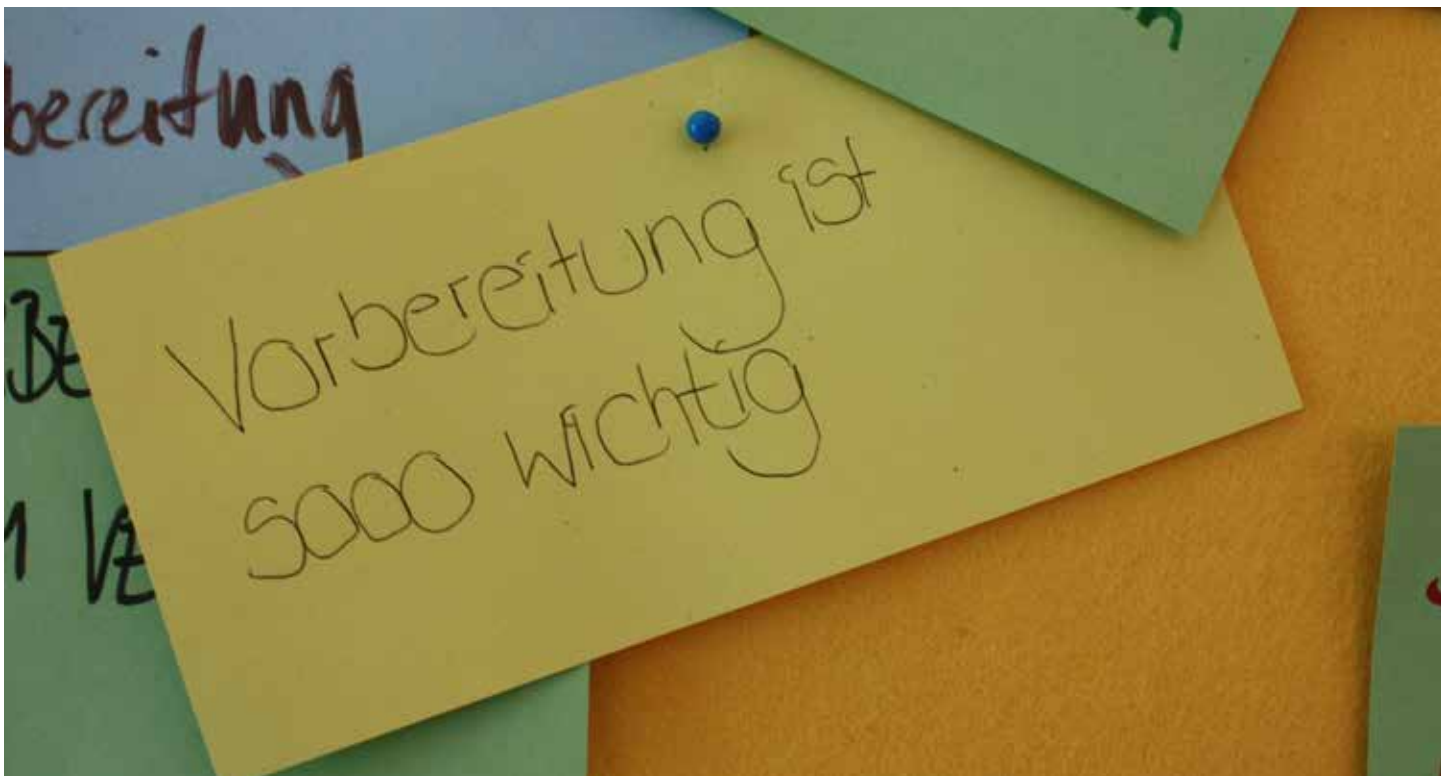 bereitung
Vorbereitung ist
sooo wichtig